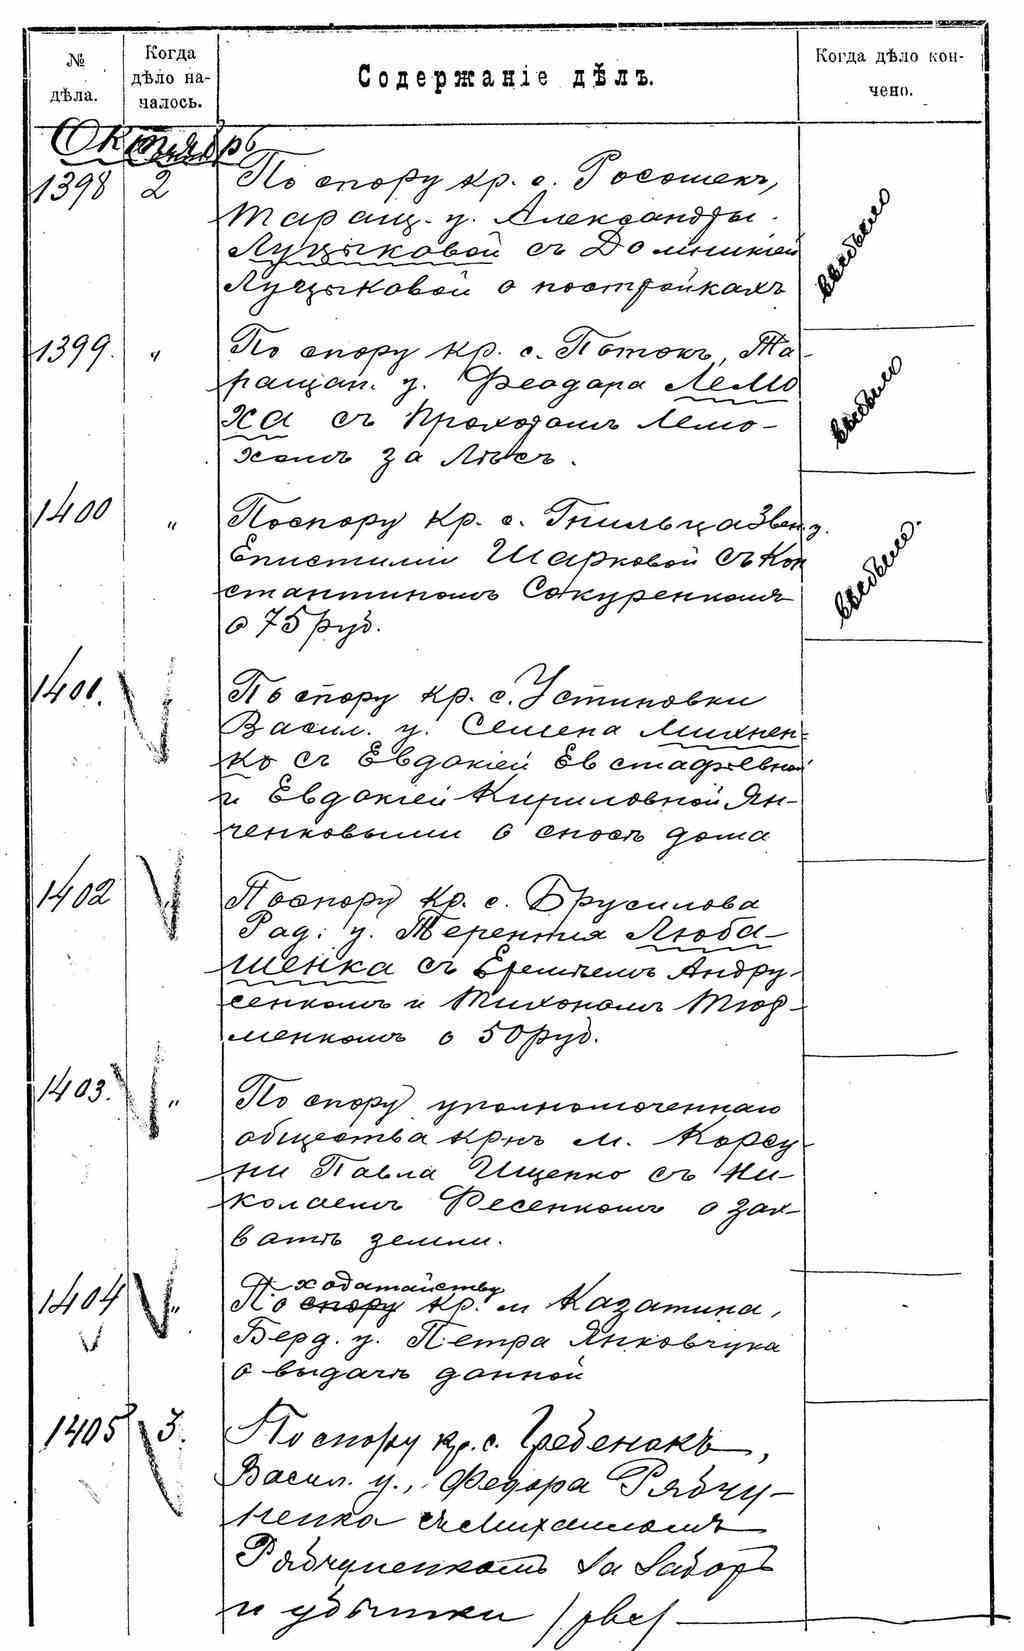 № дѣла.
Когда дѣло на-
чалось.
Содержаніе дѣлъ.
Когда дѣло кон-
чено.
Октябрь
1398 2 По спору кр. с. Росошекъ,
Таращ. у. Александры
Луцыковой съ Доминикіей
Луцыковой о постройкахъ
выбыло
1399. „ По спору кр. с. Потокъ, Та-
ращан. у. Феодора Лемо
ха съ Прохоромъ Лемо-
хомъ за лѣсъ.
выбыло
1400 „ По спору кр. с. Гнильца Звен. у.
Епистиміи Шарковой съ Кон
стантиномъ Сокуренкомъ
о 75 руб.
выбыло.
1401. По спору кр. с. Устиновки
Васил. у. Семена Михнен-
ко съ Евдокіей Евстафьевной
и Евдокіей Кириловной Ян-
ченковыми о сносѣ дома
1402 По спору кр. с. Брусилова
Рад. у. Терентія Люба-
шенка съ Еремѣемъ Андру-
сенкомъ и Тихономъ Тюр-
менкомъ о 50 руб.
1403. „ По спору уполномоченнаго
общества крнъ м. Корсу-
ни Павла Ищенко съ Ни-
колаемъ Фесенкомъ о зах-
ватѣ земли.
1404 „ По спору ходатайству кр. м Казатина,
Берд. у. Петра Янковчука
о выдачѣ данной
1405 3. По спору кр. с. Гребенокъ,
Васил. у., Федора Рябчу-
ненка съ Михаиломъ
Рябчуненкомъ за заборъ
и убытки